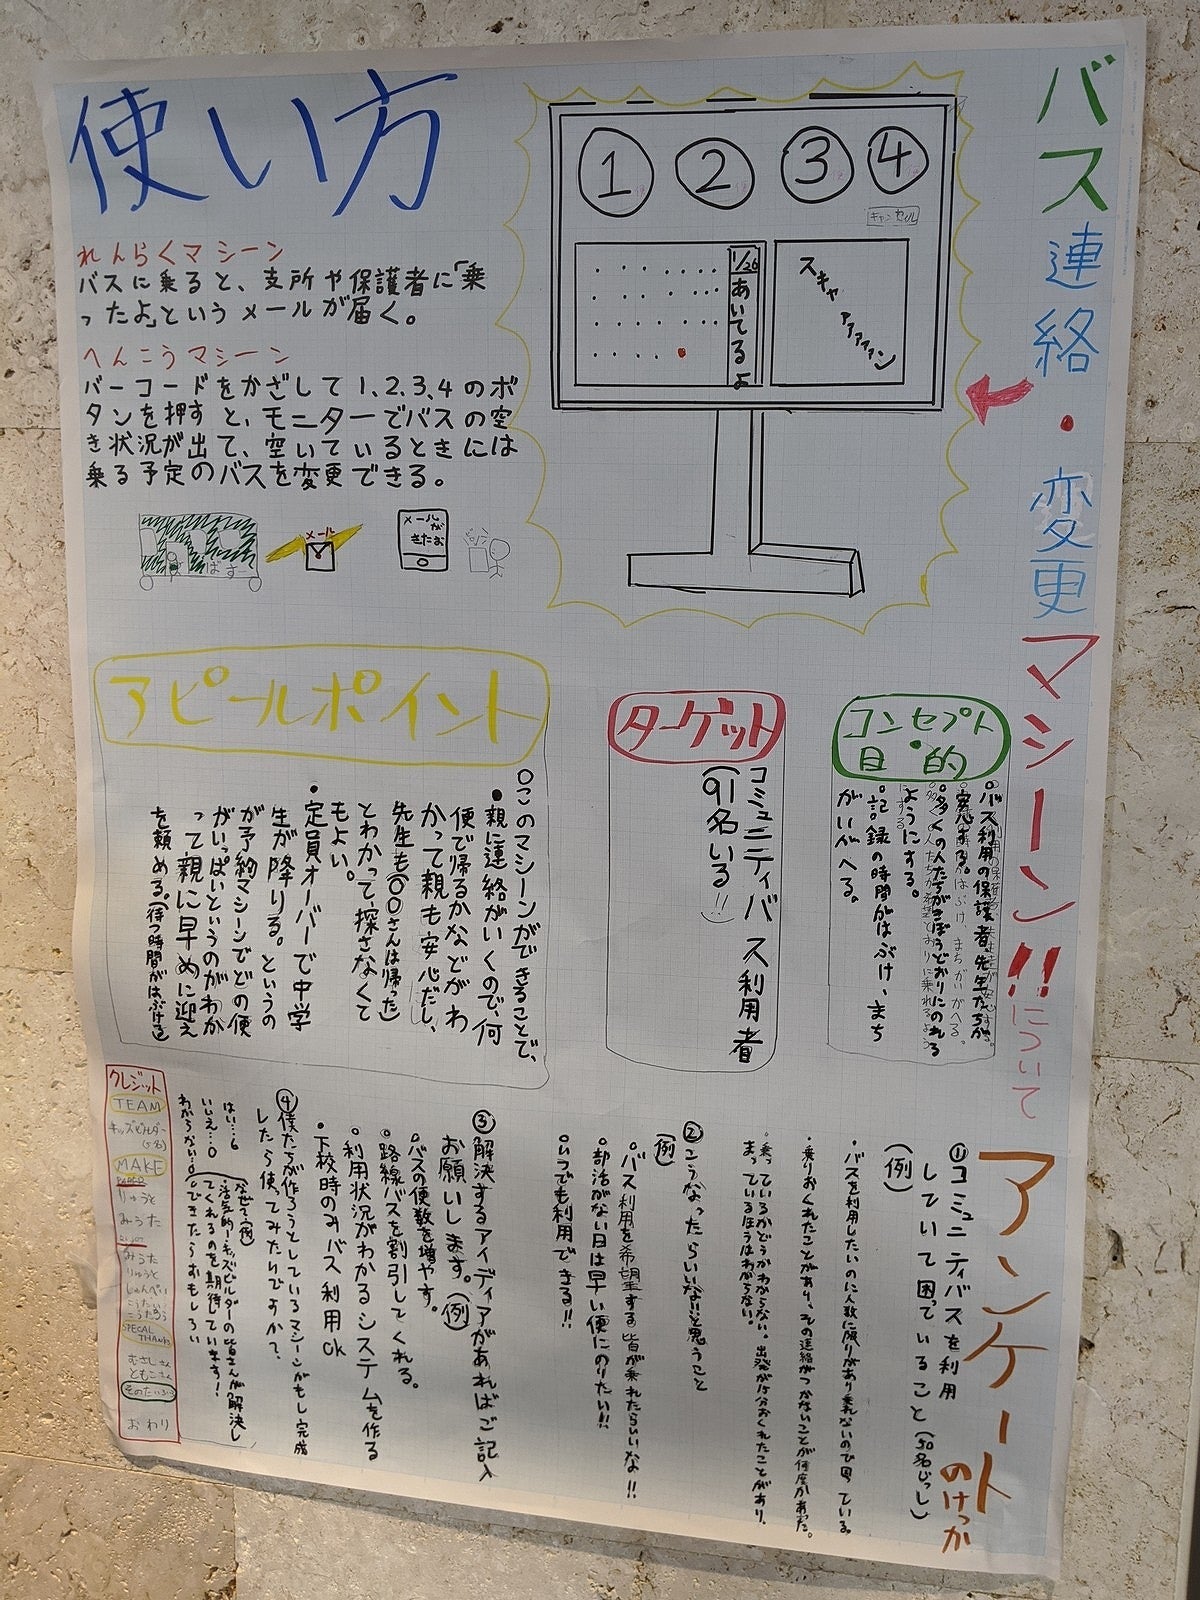 バス連絡・変更マシーン!!について
使い方
れんらくマシーン
バスに乗ると、支所や保護者に「乗
ったよ」というメールが届く。
へんこうマシーン
バーコードをかざして1、2、3、4のボ
タンを押すと、モニターでバスの空
き状況が出て、空いているときには
乗る予定のバスを変更できる。
ばすー
メール
メール
が
きたお
1
2
3
4
キャンセル
1/20
あいてるよ
スキャァァァァン
コンセプト
目・的
・バス利用の保護者、先生たちが
安心する。
・多くの人たちがきぼうどおりにのれる
ようにする。
・記録の時間がはぶけ、まち
がいがへる。
ターゲット
コミュニティバス利用者
(91名いる!!)
アピールポイント
○このマシーンができることで、
・親に連絡がいくので、何
便で帰るかなどがわ
かって親も安心だし、
先生も(○○さんは帰った)
とわかって探さなくて
もよい。
・定員オーバーで中学
生が降りる。というの
が予約マシーンでどの便
がいっぱいというのがわか
って親に早めに迎え
を頼める。(待つ時間がはぶける)
アンケートのけっか
①コミュニティバスを利用
していて困っていること(50名じっし)
(例)
・バスを利用したいのに人数に限りがあり乗れないので困っている。
・乗りおくれたことがあり、その連絡がつかないことが何度かあった。
・乗っているかどうかわからない。出発が15分おくれたことがあり、
まっているほうはわからない。
②こうなったらいいな!と思うこと
(例)
・バス利用を希望する皆が乗れたらいいな!!
・部活がない日は早い便にのりたい!!
・いつでも利用できる!!
③解決するアイディアがあればご記入
お願いします。(例)
・バスの便数を増やす。
・路線バスを割引してくれる。
・利用状況がわかるシステムを作る
・下校時のみバス利用ok
④僕たちが作ろうとしているマシーンがもし完成
したら使ってみたいですか?
はい…6
いいえ…0
わからない…0
(なぜ?例)
・活気的!キッズビルダーの皆さんが解決し
てくれるのを期待しています!
・できたらおもしろい
クレジット
TEAM
キッズビルダー
(5名)
MAKE
PAPER
りゅうと
みうた
みうた
りゅうと
しゅんぺい
こうたろう
SPECIAL
THANKS
むさしさん
ともこさん
おわり